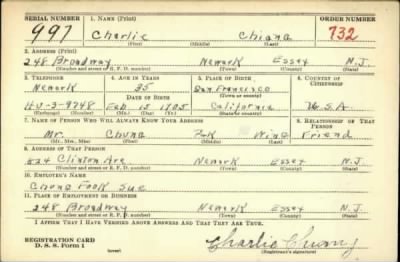 SERIAL NUMBER 1. NAME (Print) ORDER NUMBER
997 Charlie Chiang 732
(First) (Middle) (Last)
2. ADDRESS (Print)
248 Broadway Newark Essex N.J.
(Number and street or R. F. D. number) (Town) (County) (State)
3. TELEPHONE 4. AGE IN YEARS 5. PLACE OF BIRTH 6. COUNTRY OF CITIZENSHIP
Newark 35 San Francisco
DATE OF BIRTH (Town or county)
HU-3-9748 Feb 15 1905 California U.S.A.
(Exchange) (Number) (Mo.) (Day) (Yr.) (State or country)
7. NAME OF PERSON WHO WILL ALWAYS KNOW YOUR ADDRESS 8. RELATIONSHIP OF THAT PERSON
Mr. Chung Wing Friend
(Mr., Mrs., Miss) (First) (Middle) (Last)
9. ADDRESS OF THAT PERSON
Clinton Ave Newark Essex N.J.
(Number and street or R. F. D. number) (Town) (County) (State)
10. EMPLOYER'S NAME
Chong Fook Sue
11. PLACE OF EMPLOYMENT OR BUSINESS
248 Broadway Newark Essex N.J.
(Number and street or R. F. D. number) (Town) (County) (State)
I AFFIRM THAT I HAVE VERIFIED ABOVE ANSWERS AND THAT THEY ARE TRUE.
REGISTRATION CARD
D. S. S. Form 1 (over) Charlie
(Registrant's signature)